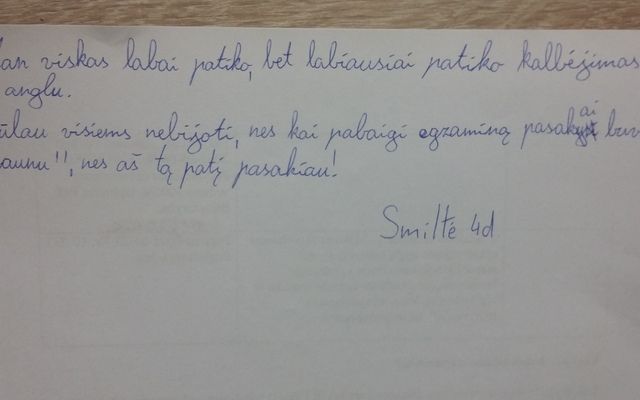 an viskas labai patiko, bet labiausiai patiko kalbėjimas
anglu.
ūlau visiems nebijoti, nes kai pabaigi egzaminą pasakai buv
aunu!!, nes aš tą patį pasakiau!
Smiltė 4d